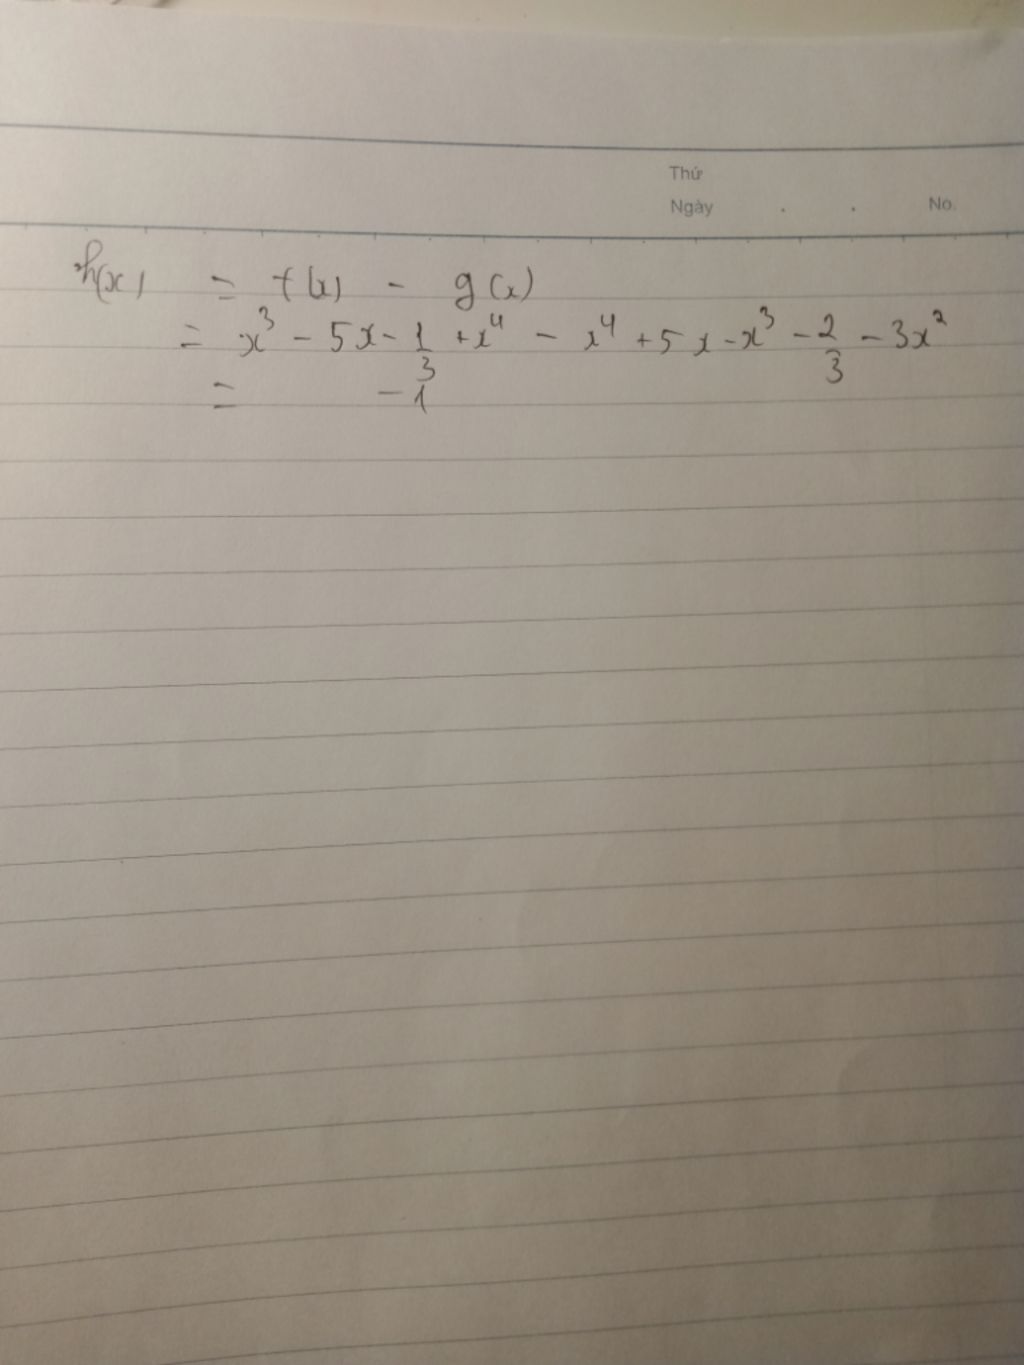 Thứ
Ngày . . No.
h(x) = f(x) - g(x)
= x³ - 5x - 1/3 + x⁴ - x⁴ + 5x - x³ - 2/3 - 3x²
= - 1